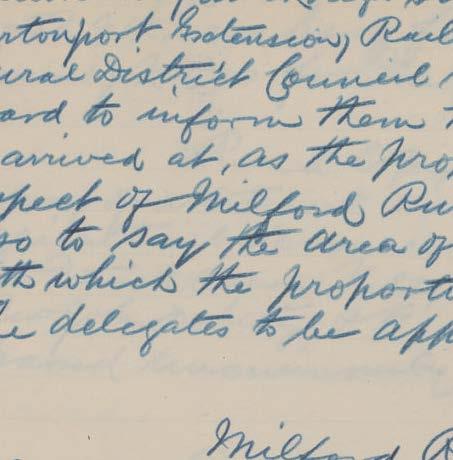 rtonport Extension, Rail
ural District Council
ard to inform them t
arrived at, as the prop
spect of Milford Ru
so to say the area of
th which the proporti
he delegates to be app
Milford R